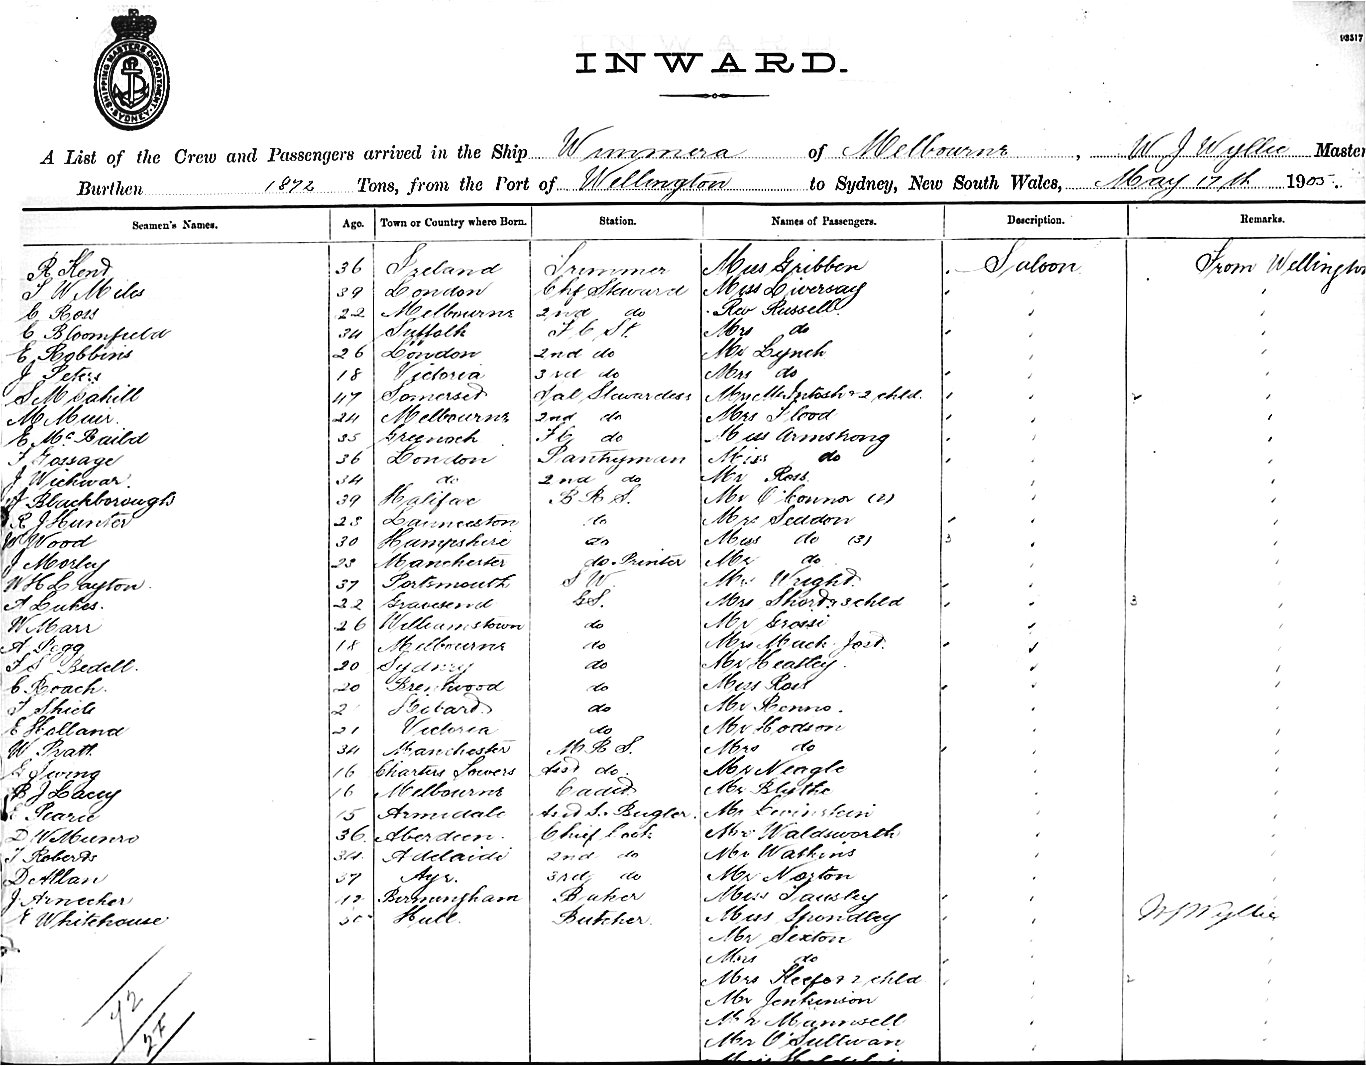 93517
SHIPPING MASTERS DEPARTMENT SYDNEY
INWARD.
A List of the Crew and Passengers arrived in the Ship Wimmera of Melbourne, W J Wyllie Master
Burthen 1872 Tons, from the Port of Wellington to Sydney, New South Wales, May 17th 1905.
Seamen's Names. Age. Town or Country where Born. Station. Names of Passengers. Description. Remarks.
R Kend 36 Ireland Trimmer Miss Gribben Saloon From Wellington
T W Miles 39 London Chf Steward Miss Liversay
C Ross 22 Melbourne 2nd do Rev Russell
C Bloomfield 34 Suffolk F C St. Mrs do
E Robbins 26 London 2nd do Mr Lynch
J Peters 18 Victoria 3rd do Mrs do
S McCahill 47 Somerset Sal Stewardess Mrs McIntosh & 2 chld. 2
M Muir. 24 Melbourne 2nd do Mrs Flood
E McBaild 35 Greenock F C do Miss Armstrong
F Gossage 36 London Pantryman Miss do
J Wickwar. 34 do 2nd do Mr Ross.
J Blackborough 39 Halifax B R S. Mr O'Connor (1)
R J Hunter 23 Launceston do Mrs Seddon
W Wood 30 Hampshire do Miss do (3) 3
J Morley 23 Manchester do. Printer Mr do
W H Layton. 37 Portsmouth S W. Mr Wright.
A Lukes. 22 Gravesend G S. Mrs Short & 3 chld 3
W Marr 26 Williamstown do Mr Grossi
A Pegg 18 Melbourne do Mrs Mack
F S Bedell. 20 Sydney do Mr Heatley.
C Roach. 20 Brentwood do Miss Ross
T Shiels 2 do Mr Renno.
E Holland 21 Victoria do Mr Hodson
W Pratt 34 Manchester M R S. Mrs do
G Ewing 16 Charters Towers Asst do. Mr Neagle
B J Lacey 16 Melbourne Cadet Mr Blythe
E Pearce 15 Armidale Asst S. Bugler. Mr Levinstein
D W Munro 36 Aberdeen. Chief Cook Mr Waldsworth
T Roberts 34 Adelaide 2nd do Mr Watkins
D Allan 37 Ayr. 3rd do Mr Norton
J Arnecher 42 Birmingham Baker Miss Tansley
E Whitehouse 50 Hull. Butcher. Miss Spondley W J Wyllie
Mr Sexton
Mrs do
Mrs & 2 chld 2
Mr Jenkinson
Mr Maunsell
Mr O'Sullivan
72
27